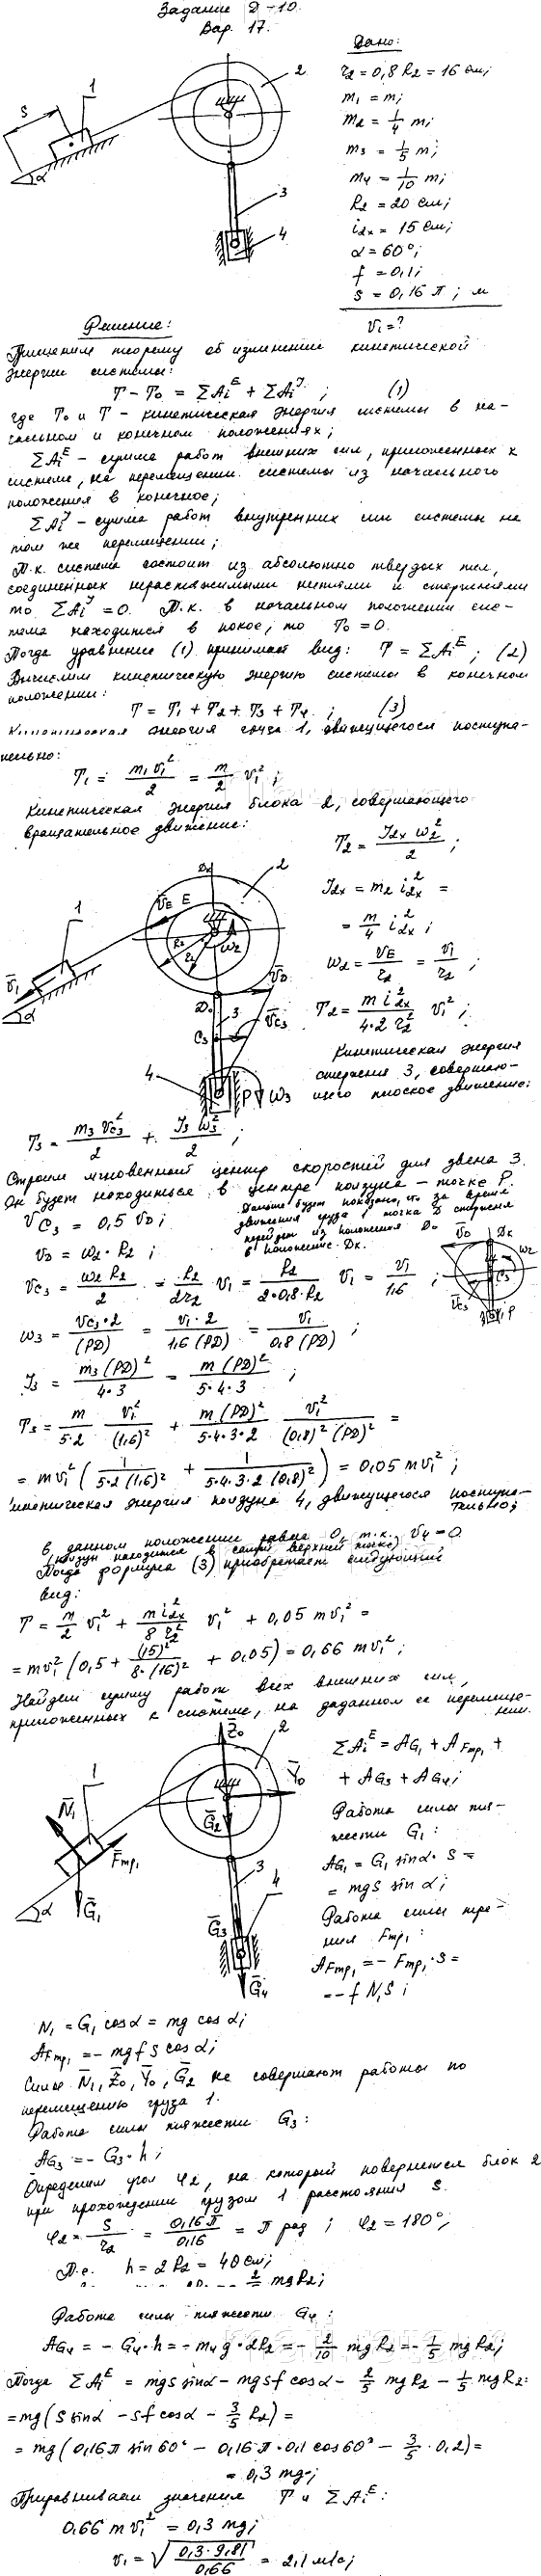 Задание Д-10.
Вар. 17.
Дано:
r₂ = 0,8 R₂ = 16 см;
m₁ = m;
m₂ = 1/4 m;
m₃ = 1/5 m;
m₄ = 1/10 m;
R₂ = 20 см;
i₂ₓ = 15 см;
α = 60°;
f = 0,1;
s = 0,16 π; м
v₁ = ?
1
2
S
α
3
4
Решение:
Применим теорему об изменении кинетической
энергии системы:
T - T₀ = ΣAᵢᴱ + ΣAᵢᴶ ; (1)
где T₀ и T - кинетическая энергия системы в на-
чальном и конечном положениях;
ΣAᵢᴱ - сумма работ внешних сил, приложенных к
системе, на перемещении системы из начального
положения в конечное;
ΣAᵢᴶ - сумма работ внутренних сил системы на
том же перемещении;
Т.к. система состоит из абсолютно твердых тел,
соединенных нерастяжимыми нитями и стержнями
то ΣAᵢᴶ = 0. Т.к. в начальном положении сис-
тема находится в покое, то T₀ = 0.
Тогда уравнение (1) принимает вид: T = ΣAᵢᴱ ; (2)
Вычислим кинетическую энергию системы в конечном
положении:
T = T₁ + T₂ + T₃ + T₄ ; (3)
Кинетическая энергия груза 1, движущегося поступа-
тельно:
T₁ = m₁v₁²/2 = m/2 v₁² ;
Кинетическая энергия блока 2, совершающего
вращательное движение:
T₂ = J₂ₓ ω₂²/2 ;
J₂ₓ = m₂ i₂ₓ² =
= m/4 i₂ₓ² ;
ω₂ = v_E/r₂ = v₁/r₂ ;
T₂ = m i₂ₓ²/(4·2 r₂²) v₁² ;
1
2
Dк
V̄_E E
R₂
r₂
ω₂
V̄₁
α
V̄_D
D₀
3
C₃
V̄c₃
4
P
ω₃
Кинетическая энергия
стержня 3, совершаю-
щего плоское движение:
T₃ = m₃ Vc₃²/2 + J₃ ω₃²/2 ;
Строим мгновенный центр скоростей для звена 3.
Он будет находиться в центре ползуна - точке P.
Vc₃ = 0,5 V_D ;
Дальше будет показано, что за время
движения груза 1 точка D стержня
перейдет из положения D₀
в положение Dк.
V_D = ω₂ · R₂ ;
Vc₃ = ω₂ R₂/2 = R₂/(2r₂) v₁ = R₂/(2·0,8·R₂) v₁ = v₁/1,6 ;
V̄_D Dк
ω₂
C₃
V̄c₃
P
ω₃ = Vc₃·2/(PD) = v₁·2/(1,6 (PD)) = v₁/(0,8 (PD)) ;
J₃ = m₃(PD)²/(4·3) = m (PD)²/(5·4·3) ;
T₃ = m/(5·2) v₁²/(1,6)² + m (PD)²/(5·4·3·2) v₁²/((0,8)² (PD)²) =
= mv₁² (1/(5·2 (1,6)²) + 1/(5·4·3·2 (0,8)²)) = 0,05 mv₁² ;
кинетическая энергия ползуна 4, движущегося поступа-
тельно;
в данном положении равна 0, т.к. V₄ = 0.
(ползун находится в самой верхней точке)
Тогда формула (3) приобретает следующий
вид:
T = m/2 v₁² + m i₂ₓ²/(8 r₂²) v₁² + 0,05 mv₁² =
= mv₁² (0,5 + (15)²/(8·(16)²) + 0,05) = 0,66 mv₁² ;
Найдем сумму работ всех внешних сил,
приложенных к системе, на заданном ее перемеще-
нии.
ΣAᵢᴱ = AG₁ + AFтр₁ +
+ AG₃ + AG₄ ;
Z̄₀
2
1
Ȳ₀
N̄₁
Ḡ₂
F̄тр₁
3
α
Ḡ₁
Ḡ₃
4
Ḡ₄
Работа силы тя-
жести G₁ :
AG₁ = G₁ sinα · S =
= mgs sin α ;
Работа силы тре-
ния Fтр₁ :
AFтр₁ = - Fтр₁ · S =
= - f N₁S ;
N₁ = G₁ cosα = mg cos α ;
AFтр₁ = - mgf s cos α ;
Силы N̄₁, Z̄₀, Ȳ₀, Ḡ₂ не совершают работы по
перемещению груза 1.
Работа силы тяжести G₃ :
AG₃ = - G₃ · h ;
Определим угол φ₂, на который повернется блок 2
при прохождении грузом 1 расстояния S.
φ₂ = S/r₂ = 0,16 π/0,16 = π рад ; φ₂ = 180° ;
Т.е. h = 2 R₂ = 40 см ;
2/5 mgR₂ ;
Работа силы тяжести G₄ :
AG₄ = - G₄ · h = - m₄ g · 2R₂ = - 2/10 mg R₂ = - 1/5 mg R₂ ;
Тогда ΣAᵢᴱ = mgs sinα - mgsf cosα - 2/5 mg R₂ - 1/5 mg R₂ =
= mg (s sinα - sf cosα - 3/5 R₂) =
= mg (0,16π sin 60° - 0,16 π·0,1 cos 60° - 3/5 · 0,2) =
= 0,3 mg ;
Приравниваем значения T и ΣAᵢᴱ :
0,66 m v₁² = 0,3 mg ;
v₁ = √(0,3·9,81/0,66) = 2,1 м/с ;